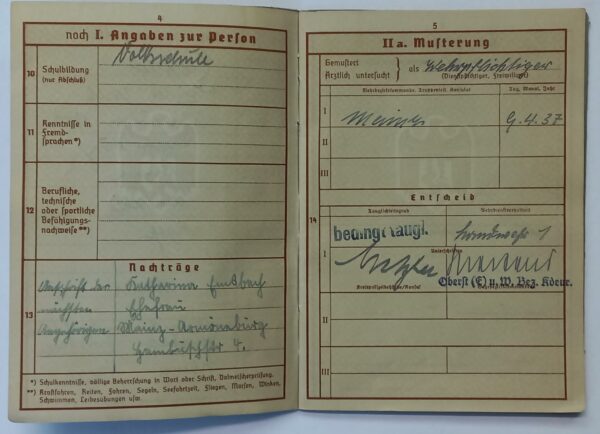 4
noch I. Angaben zur Person
10 Schulbildung (nur Abschluß)
Volksschule
11 Kenntnisse in Fremdsprachen*)
12 Berufliche, technische oder sportliche Befähigungsnachweise**)
Nachträge
13
Anschrift der
nächsten
Angehörigen
Katharina Emsbach
Ehefrau
Mainz-Amöneburg
4.
*) Schulkenntnisse, völlige Beherrschung in Wort oder Schrift, Dolmetscherprüfung.
**) Kraftfahren, Reiten, Fahren, Segeln, Seefahrtzeit, Fliegen, Morsen, Winken,
Schwimmen, Leibesübungen usw.
5
IIa. Musterung
Gemustert
Ärztlich untersucht
als Wehrpflichtiger
(Dienstpflichtiger, Freiwilliger)
Wehrbezirkskommando, Truppenteil, Konsulat
Tag, Monat, Jahr
I Mainz 9.4.37
II
III
Entscheid
14
Tauglichkeitsgrad
Wehrdienstverhältnis
bedingt taugl.
Landwehr 1
I
Unterschriften
Oberst (E) u. W. Bez. Kdeur.
II
III